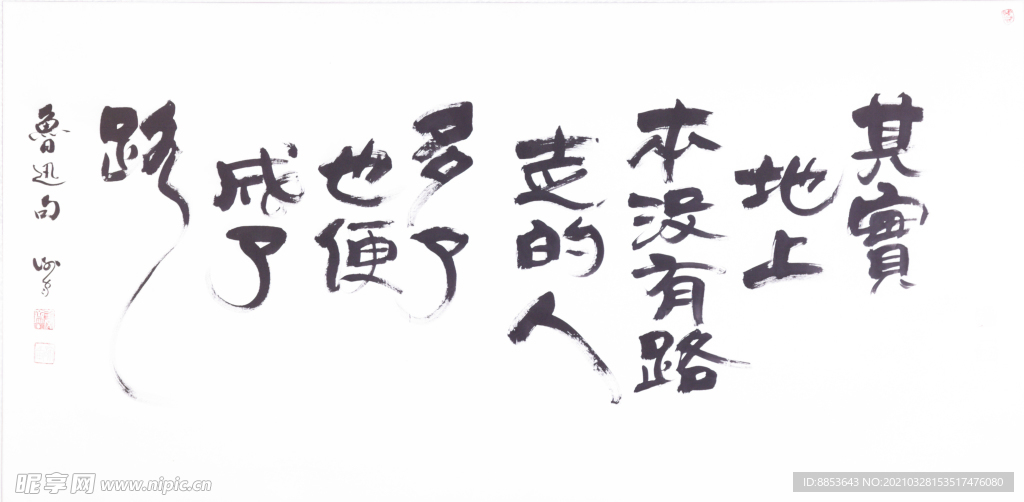 其實
地上
本没有路
走的人
多了
也便
成了
路
魯迅句
昵享网 www.nipic.cn
ID:8853643 NO:20210328153517476080